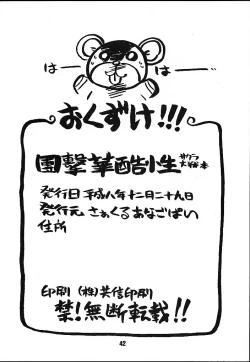 はー
はー
おくずけ!!!
團撃華酷生
サクラ
大戦本
発行日 平成八年十二月二十九日
発行元 さぁくるあなごぱい
住所
印刷 (株)共信印刷
禁!無断転載!!
42